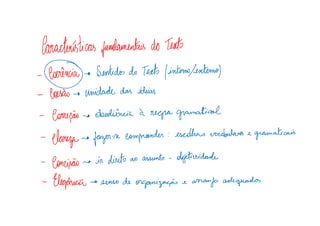 Características fundamentais do Texto
- Coerência → Sentidos do Texto (interno/externo)
- Coesão → unidade das ideias
- Correção → obediência à regra gramatical
- Clareza → fazer-se compreender: escolhas vocabulares e gramaticais
- Concisão → ir direto ao assunto - objetividade
- Elegância → senso de organização e arranjo adequados